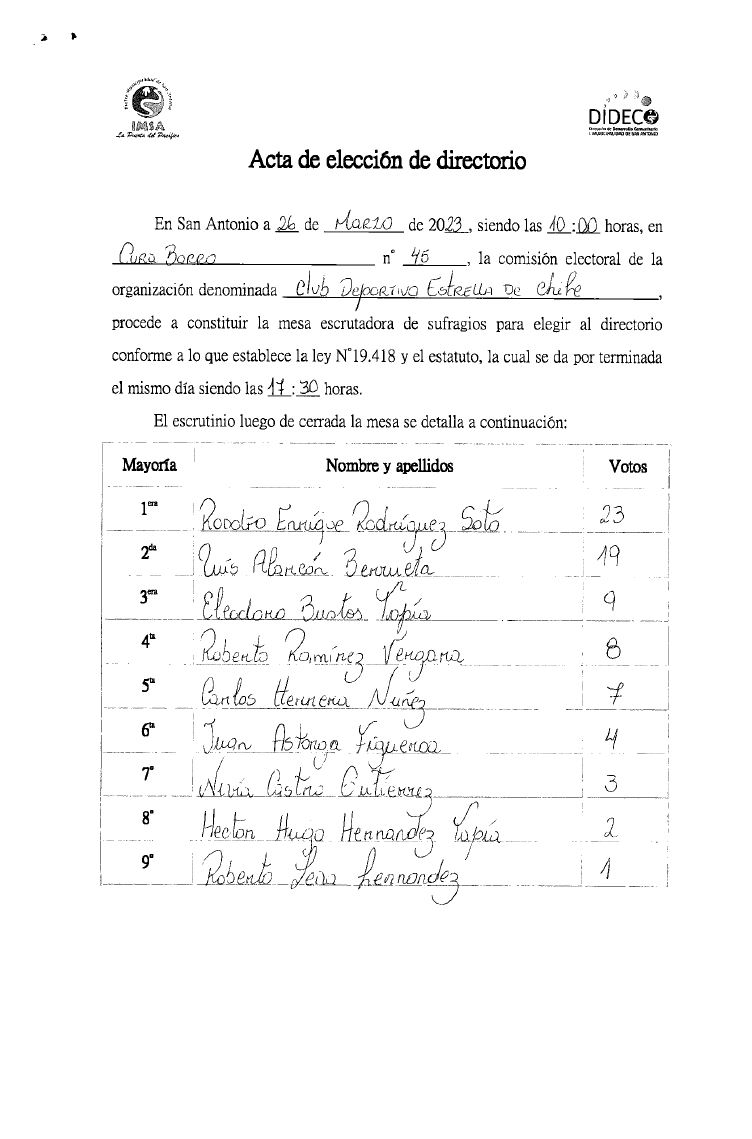 IMSA
La Puerta del Pacífico
DIDECO
Dirección de Desarrollo Comunitario
I. MUNICIPALIDAD DE SAN ANTONIO
Acta de elección de directorio
En San Antonio a 26 de Marzo de 2023, siendo las 10:00 horas, en
Cura Borro n° 45, la comisión electoral de la
organización denominada Club Deportivo Estrella de Chile,
procede a constituir la mesa escrutadora de sufragios para elegir al directorio
conforme a lo que establece la ley N°19.418 y el estatuto, la cual se da por terminada
el mismo día siendo las 17:30 horas.
El escrutinio luego de cerrada la mesa se detalla a continuación:
Mayoría Nombre y apellidos Votos
1era Rodolfo Enrique Rodríguez Soto 23
2da Luis Alarcón Berrueta 19
3era Eleodoro Bustos Tapía 9
4ta Roberto Ramínez Vergara 8
5ta Carlos Herrera Nuñez 7
6ta Juan Astorga Figueroa 4
7° Nivia Castro Gutíerrez 3
8° Hector Hugo Hernandez Tapía 2
9° Roberto 1